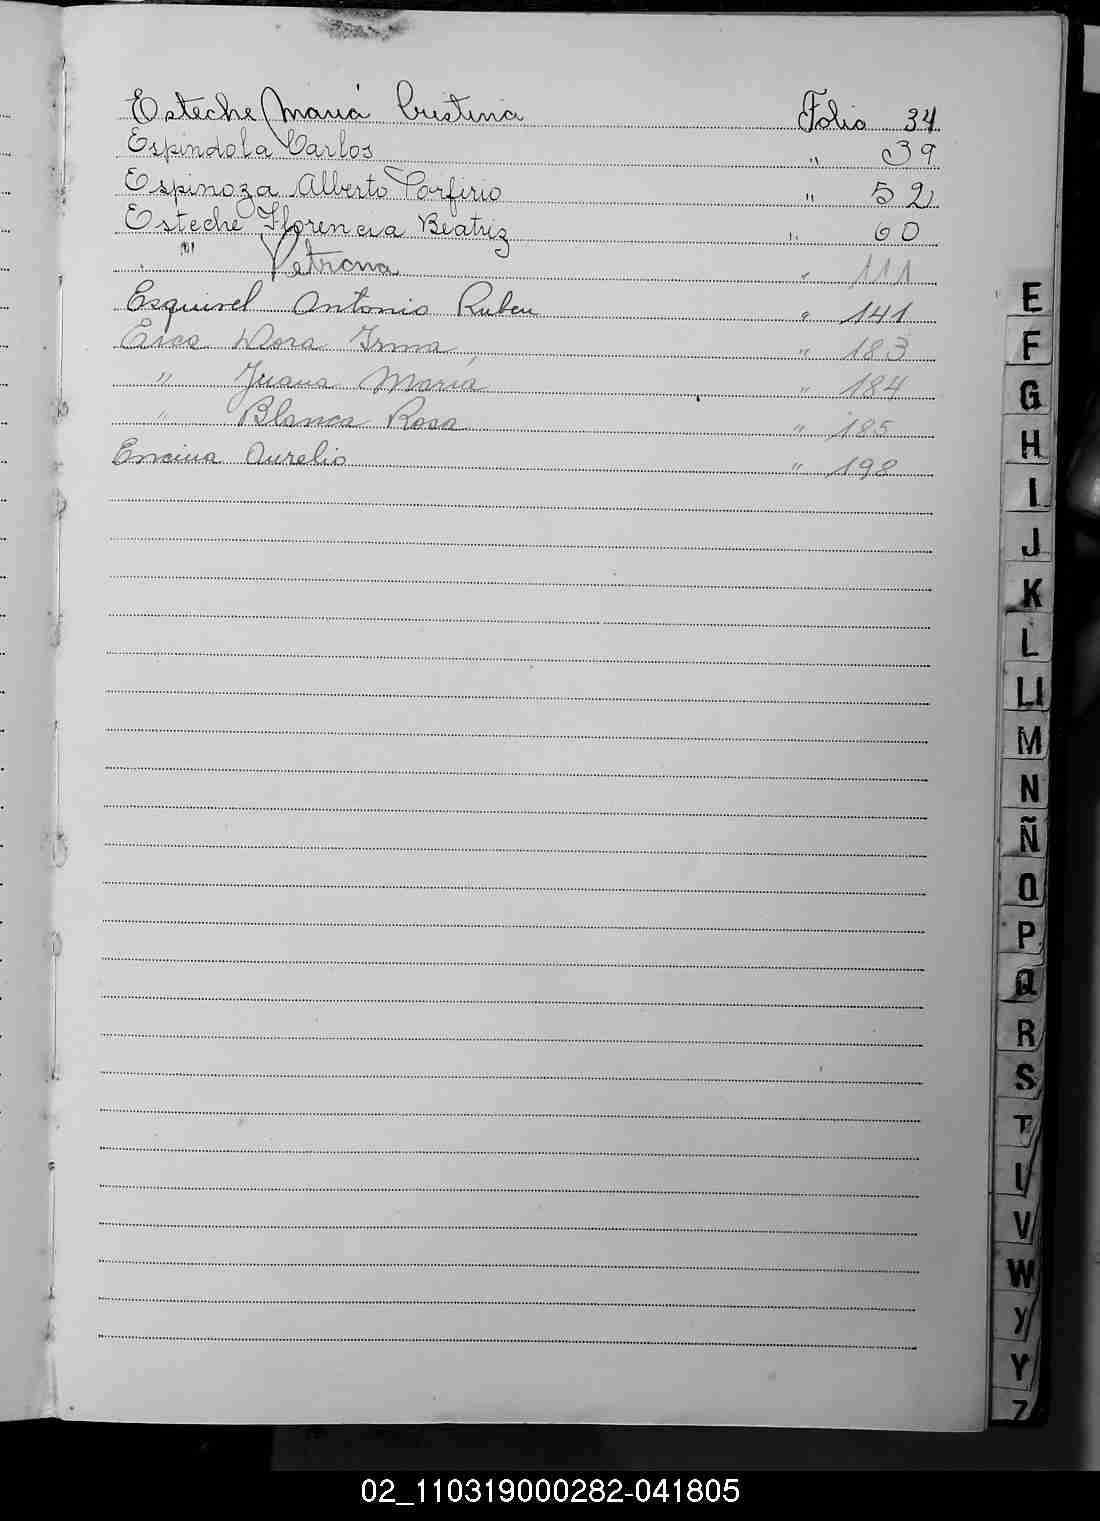 Esteche María Cristina Folio 34
Espindola Carlos " 39
Espinoza Alberto Porfirio " 52
Esteche Florencia Beatriz " 60
" Petrona " 111
Esquivel Antonio Ruben " 141
Dora Irma " 183
" Juana María " 184
" Blanca Rosa " 185
Encina Aurelio " 198
E
F
G
H
I
J
K
L
Ll
M
N
Ñ
O
P
Q
R
S
T
V
W
Y
Z
02_110319000282-041805